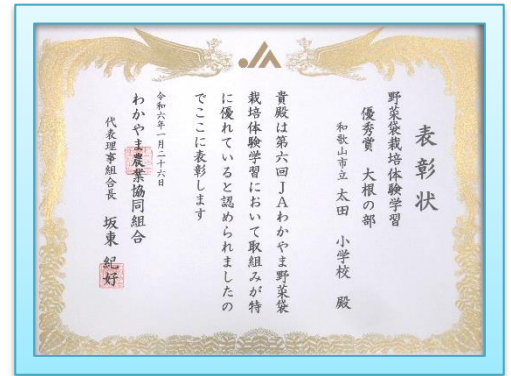 表彰状
野菜袋栽培体験学習
優秀賞 大根の部
和歌山市立 太田 小学校 殿
貴殿は第六回JAわかやま野菜袋
栽培体験学習において取組みが特
に優れていると認められましたの
でここに表彰します
令和六年一月二十六日
わかやま農業協同組合
代表理事組合長 坂東 紀好